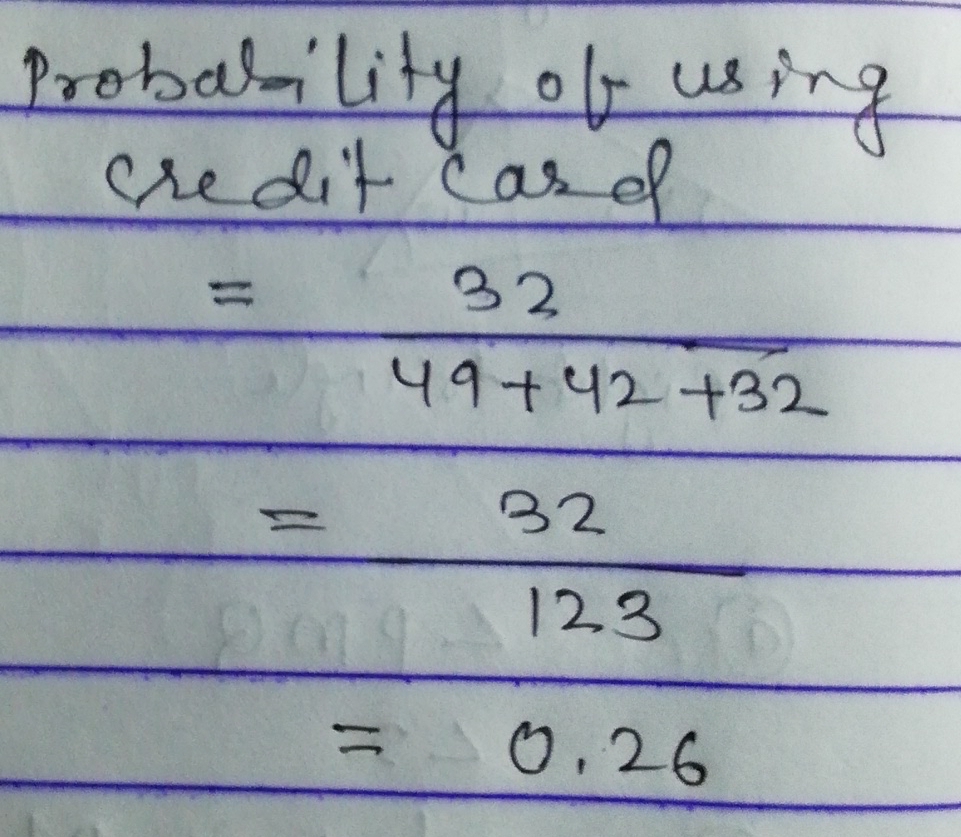 Probability of using
credit card
= 32
49+42+32
= 32
123
= 0.26